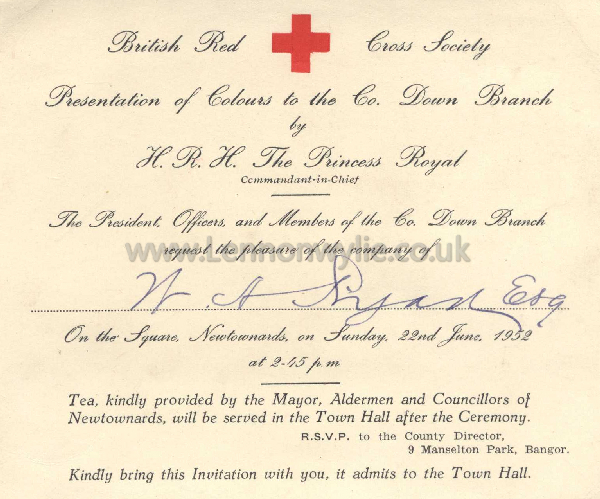 British Red Cross Society
Presentation of Colours to the Co. Down Branch
by
H. R. H. The Princess Royal
Commandant-in-Chief
The President, Officers, and Members of the Co. Down Branch
request the pleasure of the company of
www.Lennonwylie.co.uk
W. A Esq
On the Square, Newtownards, on Sunday, 22nd June, 1952
at 2-45 p m
Tea, kindly provided by the Mayor, Aldermen and Councillors of
Newtownards, will be served in the Town Hall after the Ceremony.
R.S.V.P. to the County Director,
9 Manselton Park, Bangor.
Kindly bring this Invitation with you, it admits to the Town Hall.